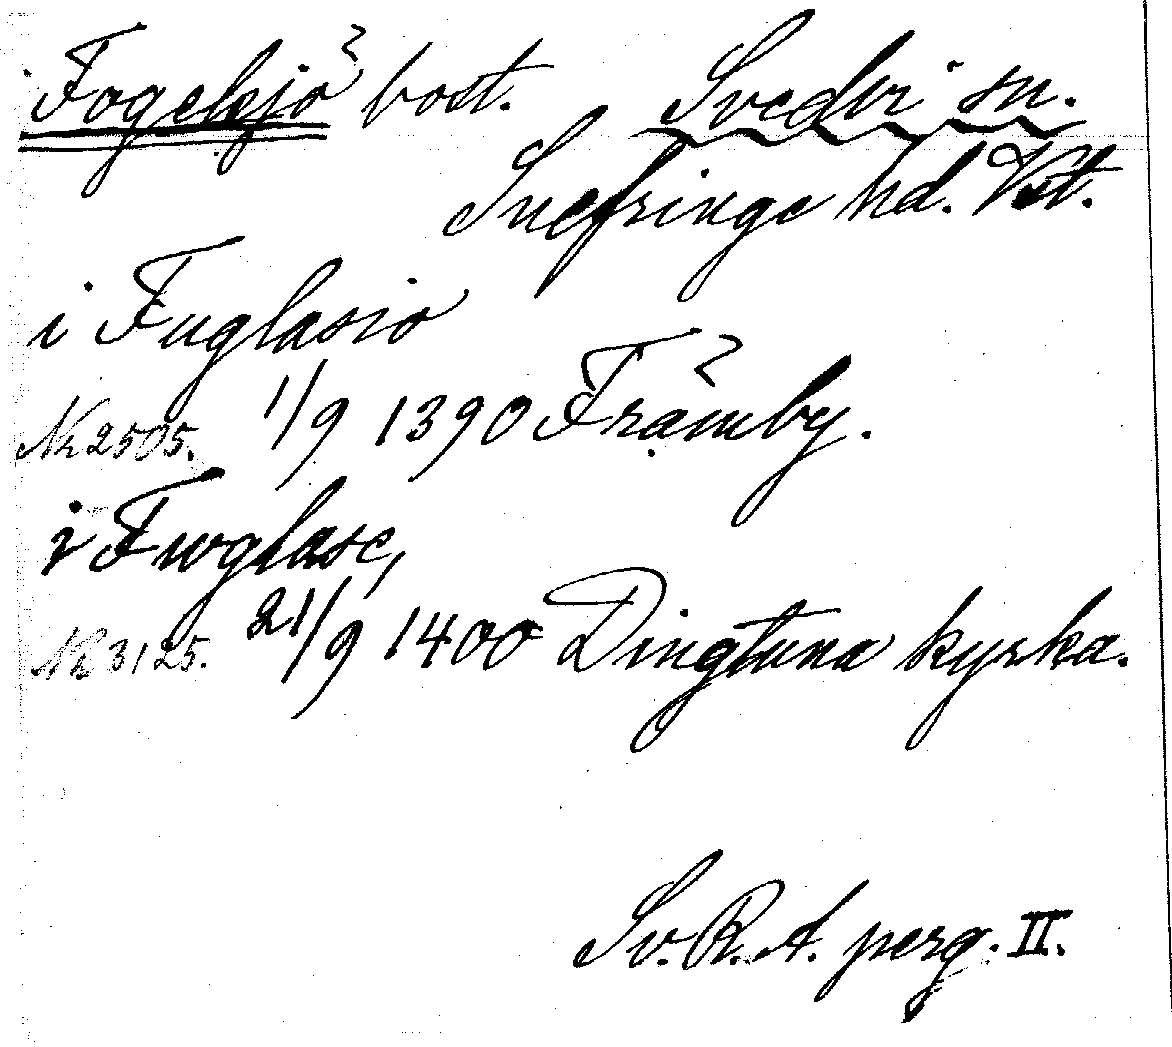 Fogelsjö? bost. Svedvi sn.
Snefringe hd. Vst.
i Fuglasio
Nr 2505. 1/9 1390 Främby.
i Fwglase,
Nr 3125. 21/9 1400 Dingtuna kyrka.
Sv. R. A. perg. II.